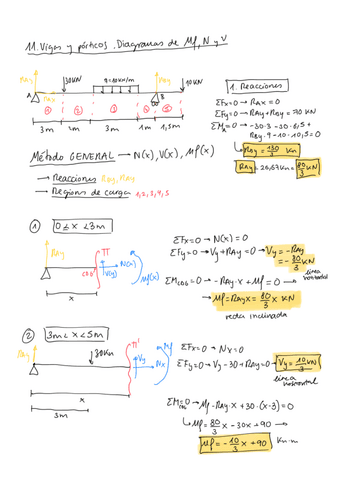 11. Vigas y pórticos. Diagramas de Mf, N y V
RAy
30KN
q=10KN/m
RBy
10KN
A
RAx
B
1 2 3 4 5
3m 2m 3m 1m 1,5m
1. Reacciones
ΣFx=0 → RAx = 0
ΣFy=0 → RAy + RBy = 70 KN
ΣMA=0 → -30·3 - 30·6,5 + RBy·9 - 10·10,5 = 0
RBy = 130/3 KN
RAy = 26,67KN = 80/3 KN
Método GENERAL → N(x), V(x), Mf(x)
→ Reacciones RAy, RBy
→ Regiones de carga 1,2,3,4,5.
1 0 ≤ x < 3m
RAy
Π
N(x)
V(y)
Mf(x)
CDG
x
ΣFx=0 → N(x) = 0
ΣFy=0 → Vy + RAy = 0 → Vy = -RAy = -80/3 KN
línea horizontal
ΣMCDG=0 → -RAy·x + Mf = 0
Mf = RAy·x = 80/3 x KN
recta inclinada
2 3m < x < 5m
RAy
30KN
Π'
Vy
Nx
Mf
x
3m
ΣFx=0 → Nx = 0
ΣFy=0 → Vy - 30 + RAy = 0 → Vy = 10/3 KN
línea horizontal
ΣMCDG=0 → Mf - RAy·x + 30·(x-3) = 0
Mf = 80/3 x - 30x + 90 →
Mf = -10/3 x + 90 KN·m